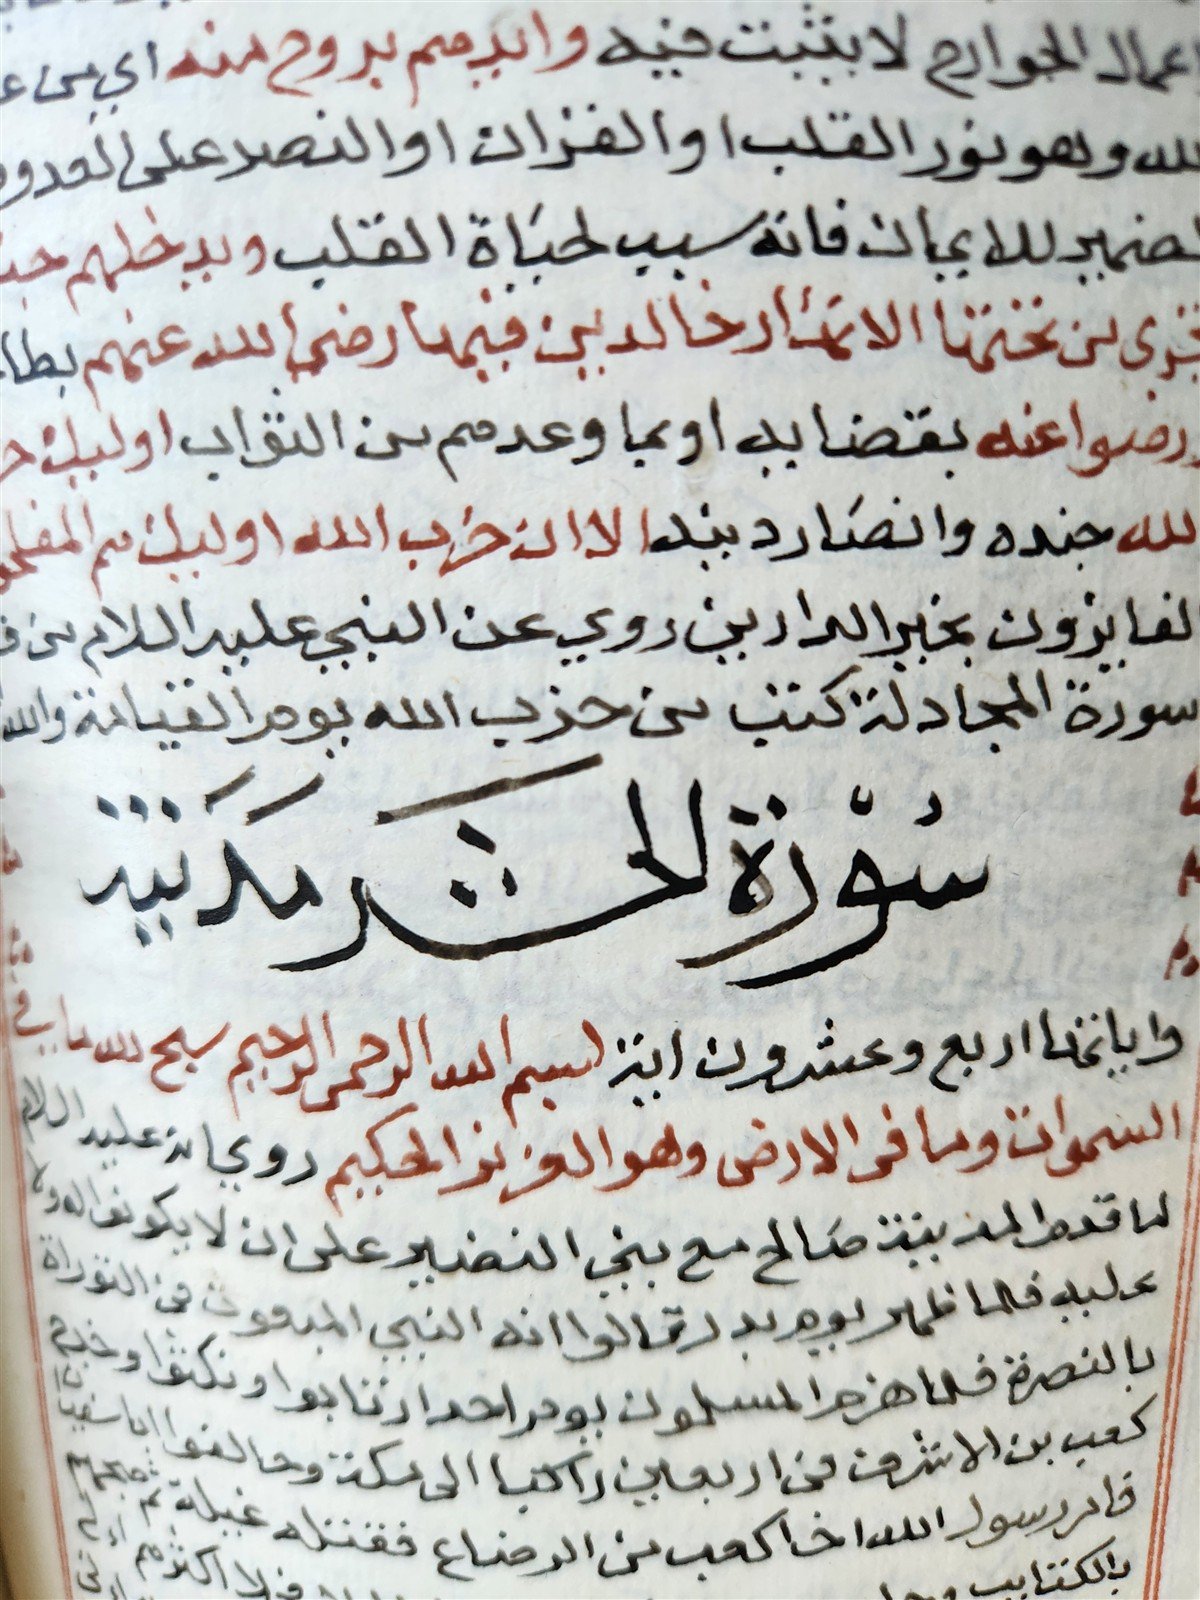 اعمال الجوارح لا يثبت فيه وايدهم بروح منه اي من
الله وهو نور القلب او القران او النصر على العدو
الضمير للايمان فانه سبب لحياة القلب ويدخلهم
تجرى من تحتها الانهار خالدين فيها رضي الله عنهم
ورضوا عنه بقضايه او بما وعدهم من الثواب اوليك
الله جنده وانصار دينه الا ان حزب الله اوليك هم
الفايزون بخير الدارين روي عن النبي عليه السلام من
سورة المجادلة كتب من حزب الله يوم القيامة والله
سورة الحشر مدنية
واياتها اربع وعشرون اية بسم الله الرحمن الرحيم سبح لله ما في
السموات وما في الارض وهو العزيز الحكيم روي انه عليه السلام
لما قدم المدينة صالح مع بني النضير على ان لا يكونوا له ولا
عليه فلما ظهر يوم بدر قالوا انه النبي المبعوث في التوراة
بالنصرة فلما هزم المسلمون يوم احد ارتابوا ونكثوا وخرج
كعب بن الاشرف في اربعين راكبا الى مكة وحالفوا ابا سفيان
فامر رسول الله اخا كعب من الرضاع فقتله غيلة ثم صبحهم
بالكتايب